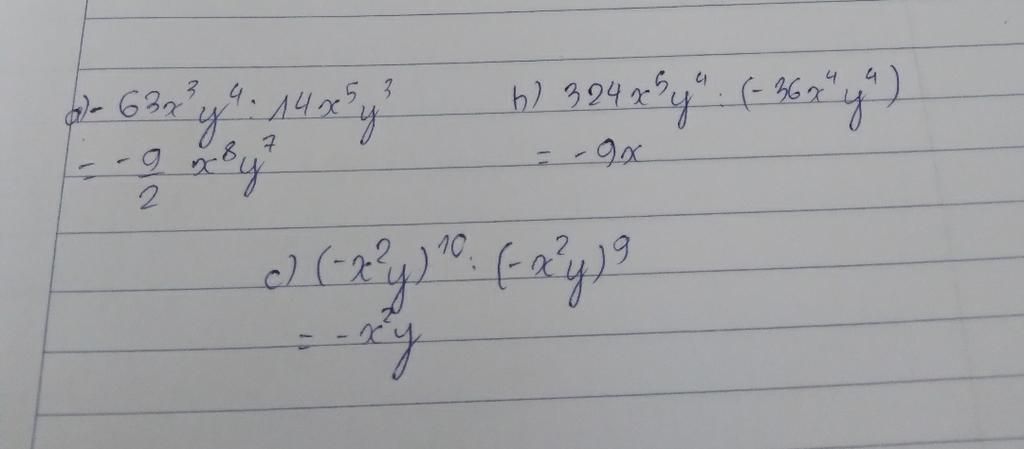 a) - 63x³y⁴ : 14x⁵y³
= -9/2 x⁸y⁷
b) 324x⁵y⁴ : (-36x⁴y⁴)
= -9x
c) (-x²y)¹⁰ : (-x²y)⁹
= -x²y